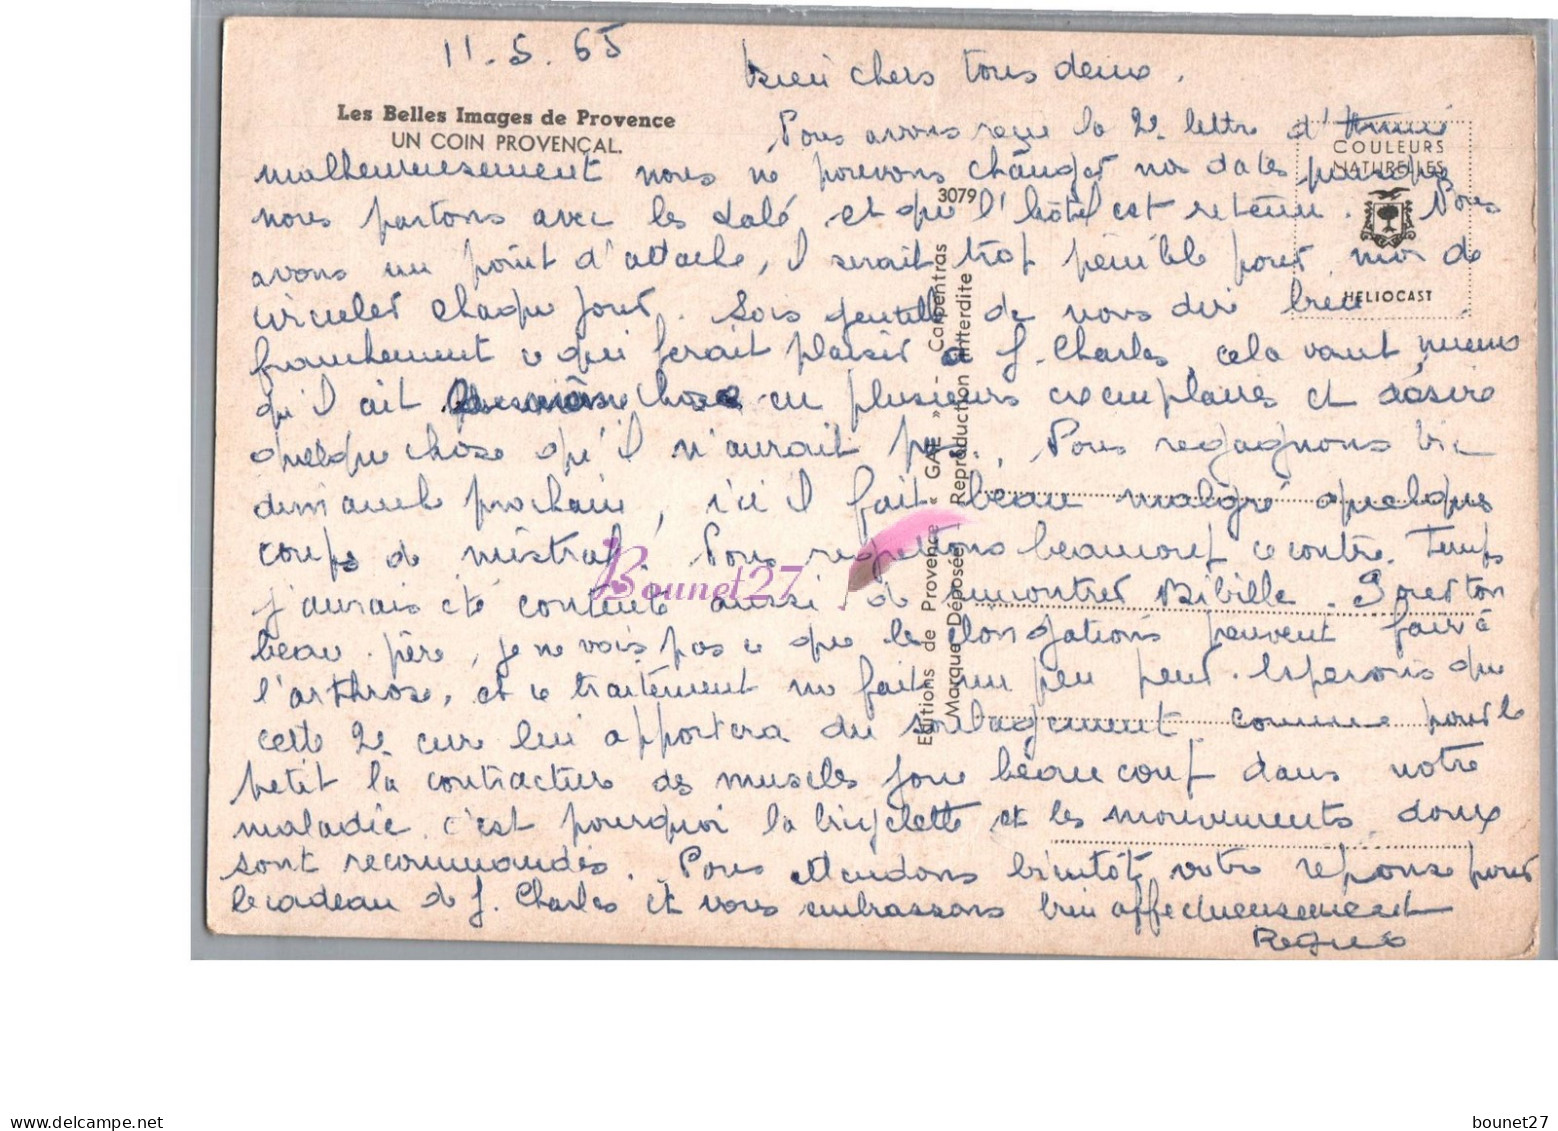 11.5.65
Bien chers tous deux.
Les Belles Images de Provence
UN COIN PROVENÇAL.
Nous avons reçu la 2e lettre d'Annie
COULEURS
NATURELLES
malheureusement nous ne pouvons changer nos dates puisque
3079
nous partons avec les et que l'hôtel est retenu. Nous
avons un point d'attache, il serait trop pénible pour moi de
HELIOCAST
circuler chaque jour. Sois gentille de nous dire bien
franchement ce qui ferait plaisir à J. Charles, cela vaut mieux
qu'il ait chose en plusieurs exemplaires et désire
quelque chose qu'il n'aurait pas. Nous regagnons Vic
dimanche prochain, ici il fait beau malgré quelques
coups de mistral. Nous regrettons beaucoup ce contre Temps
j'aurais été contente aussi de rencontrer Bibille. Pour ton
beau père, je ne vois pas ce que les élongations peuvent faire à
l'arthrose, et ce traitement me fait un peu peur. Espérons que
cette 2e cure lui apportera du soulagement comme pour le
petit la contracture des muscles joue beaucoup dans notre
maladie c'est pourquoi la bicyclette et les mouvements doux
sont recommandés. Nous attendons bientôt votre réponse pour
le cadeau de J. Charles et vous embrassons bien affectueusement
Editions de Provence « GAL » - Carpentras
Marque Déposée - Reproduction interdite
Bounet27
bounet27